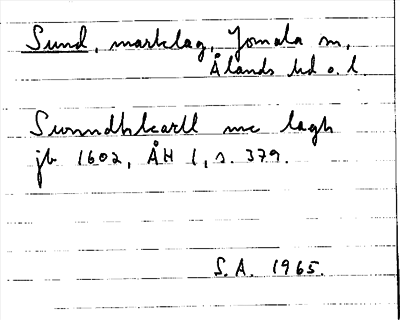 Sund, marklag, Jomala sn,
Ålands hd o. l.
Swnndhkarll me lagh
jb 1602, ÅH 1, s. 379.
S.A. 1965.